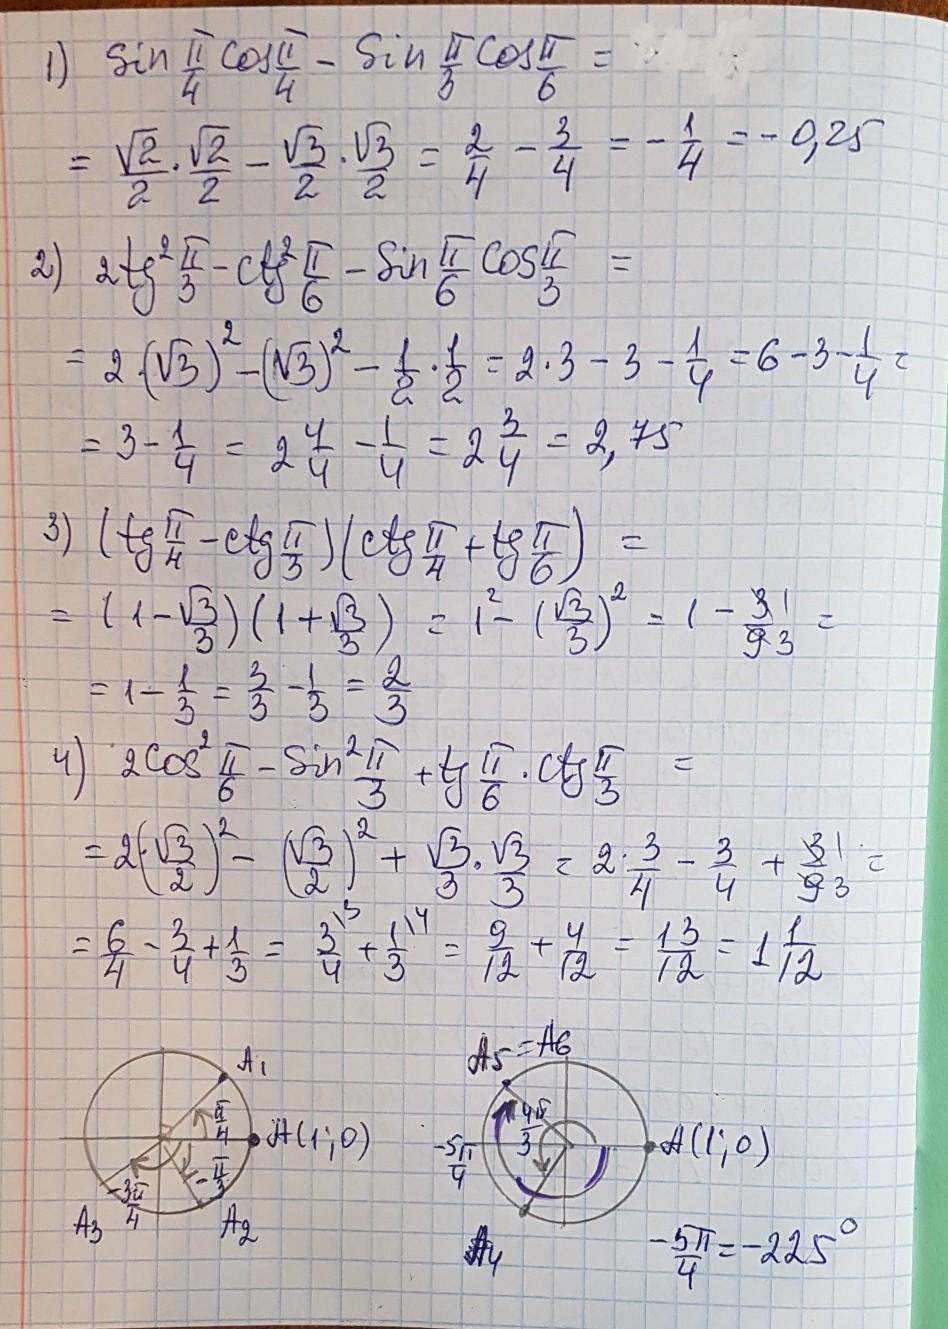 1) Sin π/4 Cos π/4 - Sin π/3 Cos π/6 =
= √2/2 · √2/2 - √3/2 · √3/2 = 2/4 - 3/4 = - 1/4 = - 0,25
2) 2tg² π/3 - ctg² π/6 - Sin π/6 Cos π/3 =
= 2·(√3)² - (√3)² - 1/2 · 1/2 = 2·3 - 3 - 1/4 = 6 - 3 - 1/4 =
= 3 - 1/4 = 2 4/4 - 1/4 = 2 3/4 = 2,75
3) (tg π/4 - ctg π/3)(ctg π/4 + tg π/6) =
= (1 - √3/3)(1 + √3/3) = 1² - (√3/3)² = 1 - 3 1/9 3 =
= 1 - 1/3 = 3/3 - 1/3 = 2/3
4) 2Cos² π/6 - Sin² π/3 + tg π/6 · ctg π/3 =
= 2·(√3/2)² - (√3/2)² + √3/3 · √3/3 = 2 · 3/4 - 3/4 + 3 1/9 3 =
= 6/4 - 3/4 + 1/3 = 3/4 \3 + 1/3 \4 = 9/12 + 4/12 = 13/12 = 1 1/12
A₁
π/4
A(1;0)
-π/3
-3π/4
A₃
A₂
A₅ = A₆
4π/3
-5π/4
A(1;0)
A₄
-5π/4 = -225°